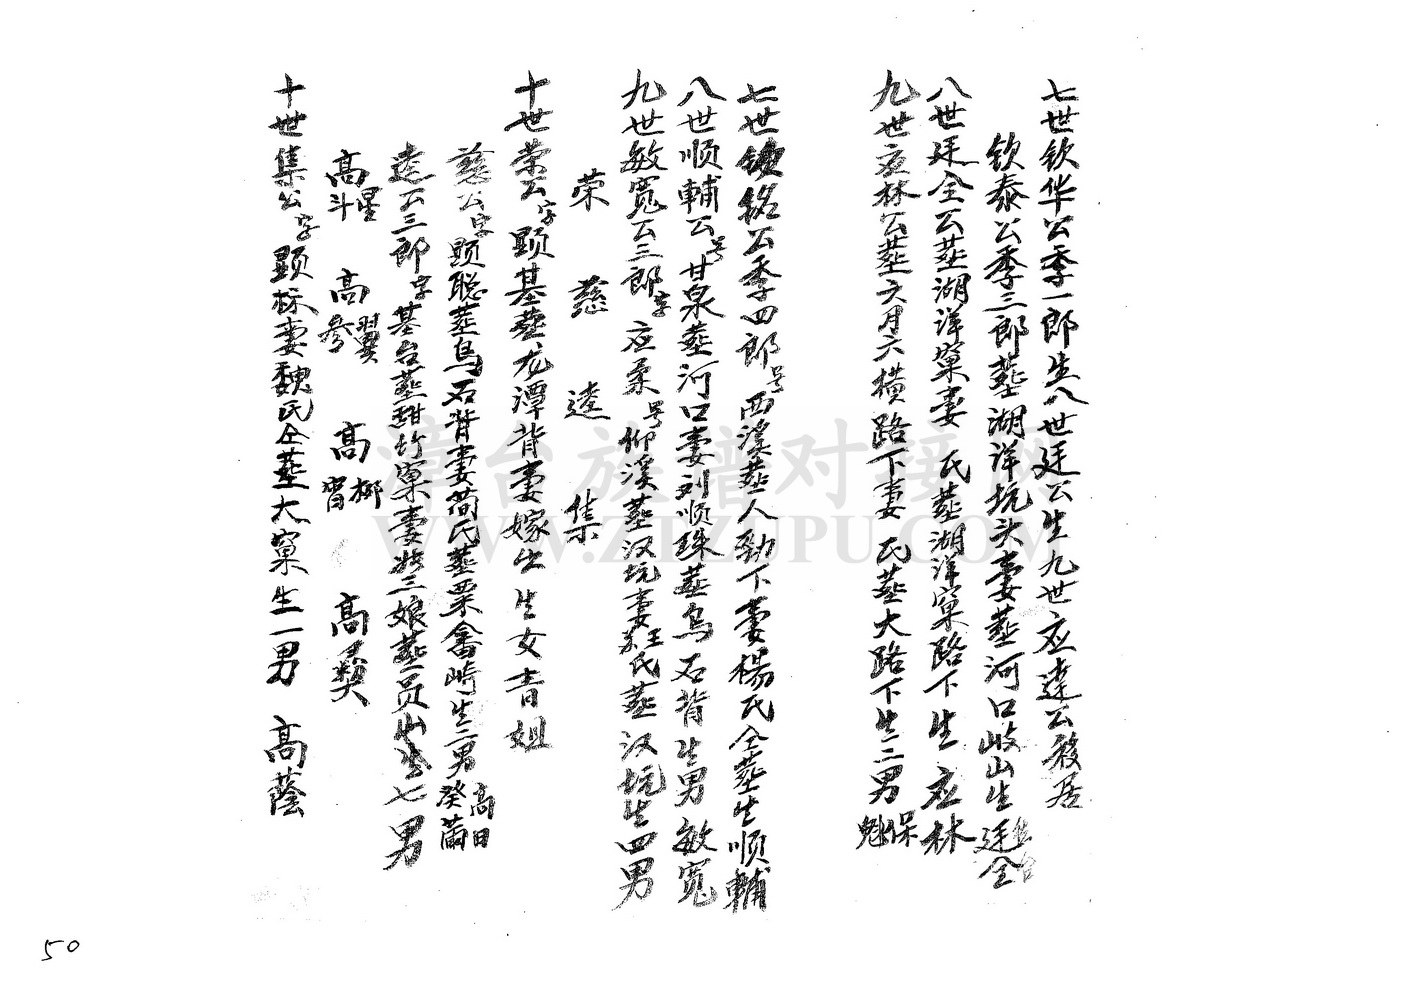 七世钦华公季一郎生八世廷公生九世应達公移居
钦泰公季三郎塟湖洋坑头妻塟河口岐山生廷全
八世廷全公塟湖洋窠妻 氏塟湖洋窠路下生应林
九世应林公塟六月六横路下妻 氏塟大路下生二男 保 魁
七世钦铭公季四郎号西溪塟人勁下妻楊氏仝塟生顺輔
八世顺輔公号甘泉塟河口妻刘顺珠塟乌石背生男敏寬
九世敏寬公三郎字应柔号仰溪塟汉坑妻王氏塟汉坑生四男
荣 慈 逵 集
十世荣公字顕基塟龙潭背妻嫁出生女青姐
慈公字顕聪塟乌石背妻荷氏塟栗畲崎生二男 高日 癸蘭
逵公三郎字基台塟甜竹窠妻 三娘塟员山生七男
高星 斗 高翼 参 高柳 胃 高奬
十世集公字顕标妻魏氏仝塟大窠生一男 高蔭
漳台族谱对接
WWW.ZTZUPU.COM
50